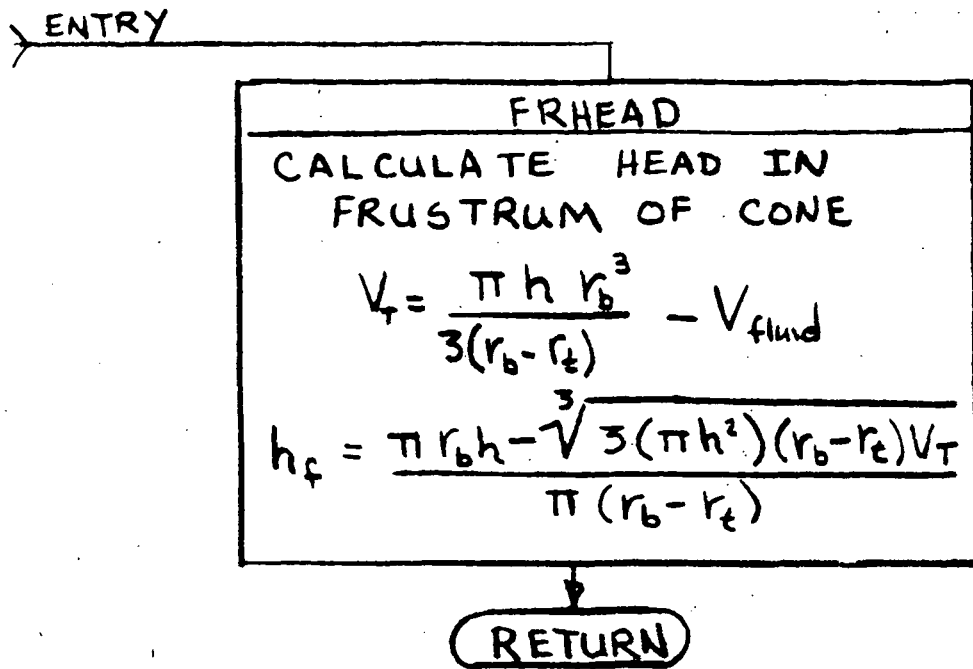 ENTRY
FRHEAD
CALCULATE HEAD IN
FRUSTRUM OF CONE
V_T = π h r_b^3 / 3(r_b - r_t) - V_fluid
h_f = (π r_b h - ∛(3(πh²)(r_b - r_t)V_T)) / π(r_b - r_t)
RETURN